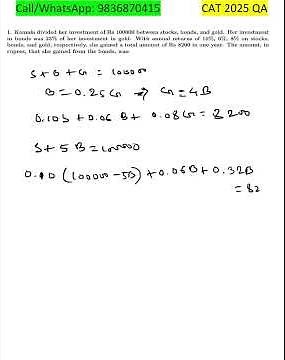 Call/WhatsApp: 9836870415 CAT 2025 QA
1. Kamala divided her investment of Rs 100000 between stocks, bonds, and gold. Her investment
in bonds was 25% of her investment in gold. With annual returns of 10%, 6%, 8% on stocks,
bonds, and gold, respectively, she gained a total amount of Rs 8200 in one year. The amount, in
rupees, that she gained from the bonds, was
S + B + G = 100000
B = 0.25 G → G = 4B
0.10S + 0.06 B + 0.08 G = 8200
S + 5B = 100000
0.10 (100000 - 5B) + 0.06B + 0.32B
= 82